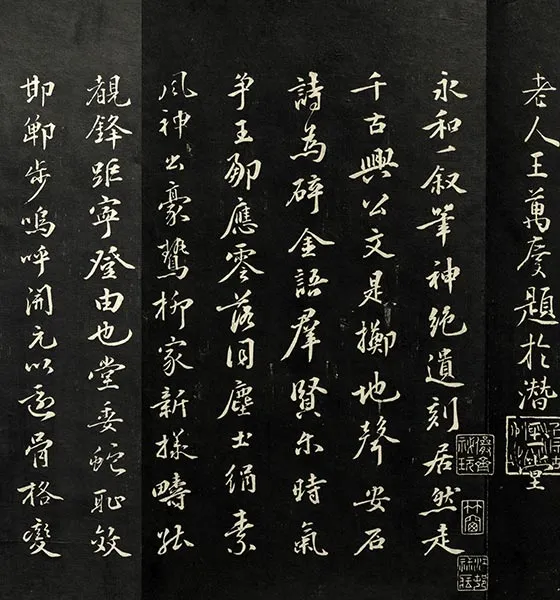 老人王萬慶題於潛
永和一叙筆神絶遺刻居然走
千古興公文是擲地聲安石
詩為碎金語羣賢尒時氣
争王郎應零落旧塵土絹素
風神公豪鷙柳家新様疇能
覩鋒距寧登由也堂委蛇耻效
邯鄲步嗚呼開元以還骨格變